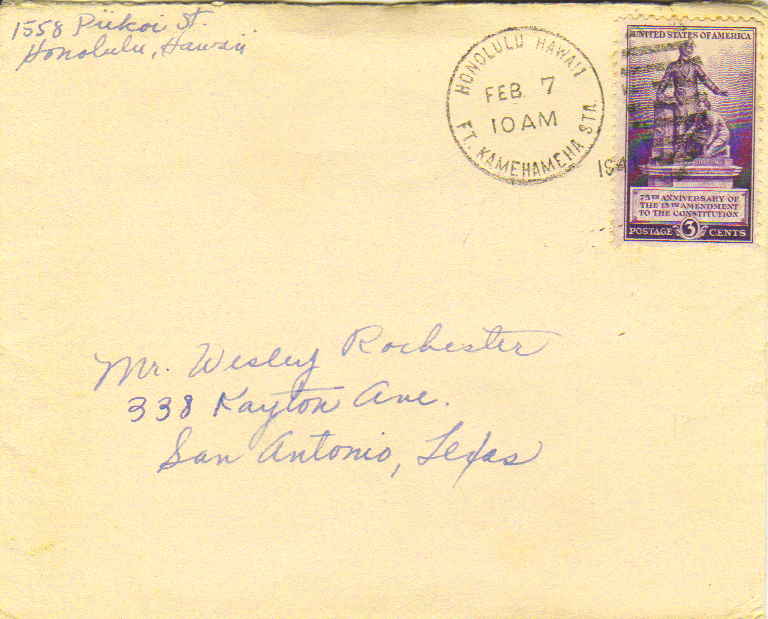 1558 Piikoi St.
Honolulu, Hawaii
HONOLULU HAWAII
FEB 7
10 AM
FT. KAMEHAMEHA STA.
UNITED STATES OF AMERICA
75TH ANNIVERSARY OF
THE 13TH AMENDMENT
TO THE CONSTITUTION
POSTAGE 3 CENTS
Mr. Wesley Rochester
338 Kayton Ave.
San Antonio, Texas